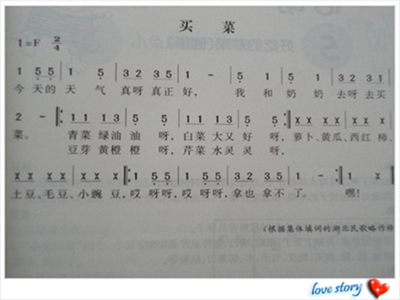 买 菜
1=F 2/4
1 5 5 | 1 5 | 3 2 3 5 | 1 - | 5 1 | 5 5 | 3 2 3 1 |
今 天的 天 气 真呀 真正 好， 我 和 奶 奶 去呀 去买
2 - ‖: 1 1 1 3 | 5 5 | 1 1 1 3 | 5 5 :‖: x x x x | x x x x |
菜。 青菜 绿油 油 呀，白菜 大又 好 呀，萝卜、黄瓜、西红 柿、
豆芽 黄橙 橙 呀，芹菜 水灵 灵 呀。
土豆、毛豆、小豌 豆，哎 呀呀，哎 呀呀，拿也 拿不 了。 嘿！
(根据集体填词的湖北民歌略作修
love story